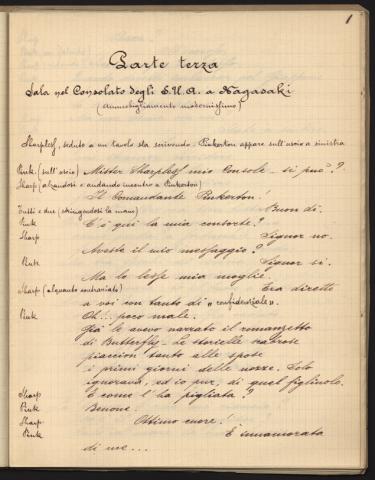 1
Parte terza
Sala nel Consolato degli S.U.A. a Nagasaki
(ammobigliamento modernissimo)
Sharpless, seduto a un tavolo sta scrivendo. Pinkerton appare sull'uscio a sinistra
Pink. (sull'uscio) Mister Sharpless mio Console – si può?
Sharp (alzandosi e andando incontro a Pinkerton)
Il Comandante Pinkerton!
Tutti e due (stringendosi la mano) Buon dì.
Pink È qui la mia consorte?
Sharp Signor no.
Aveste il mio messaggio?
Pink Signor sì.
Ma lo lesse mia moglie.
Sharp (alquanto contrariato) Era diretto
a voi con tanto di "confidenziale".
Pink Oh!.. poco male.
Già le avevo narrato il romanzetto
di Butterfly – Le storielle
piaccion tanto alle spose
i primi giorni delle nozze. Solo
ignorava, ed io pur, di quel figliuolo.
Sharp E come l'ha pigliata?
Pink Benone.
Sharp Ottimo cuore!
Pink È innamorata
di me...